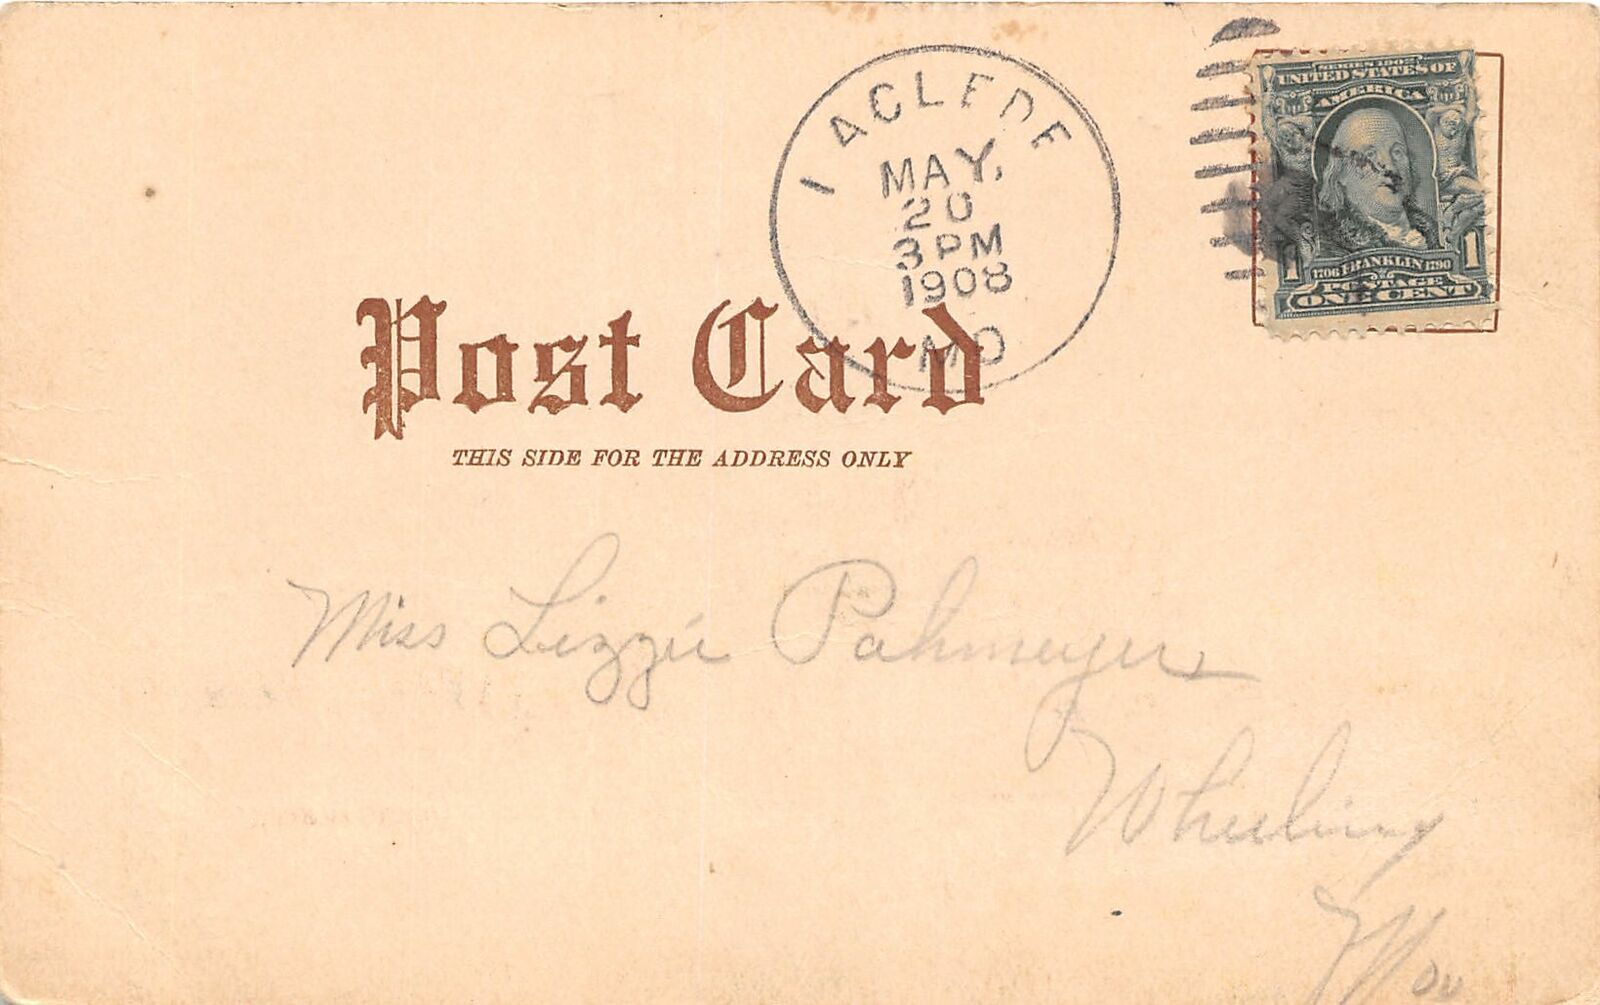 LACLEDE
MAY.
20
3 PM
1908
MO
SERIES 1902
UNITED STATES OF
AMERICA
1 1
1706 FRANKLIN 1790
POSTAGE
ONE CENT
Post Card
THIS SIDE FOR THE ADDRESS ONLY
Miss Lizzie Pahmeyer
Wheeling
Mo